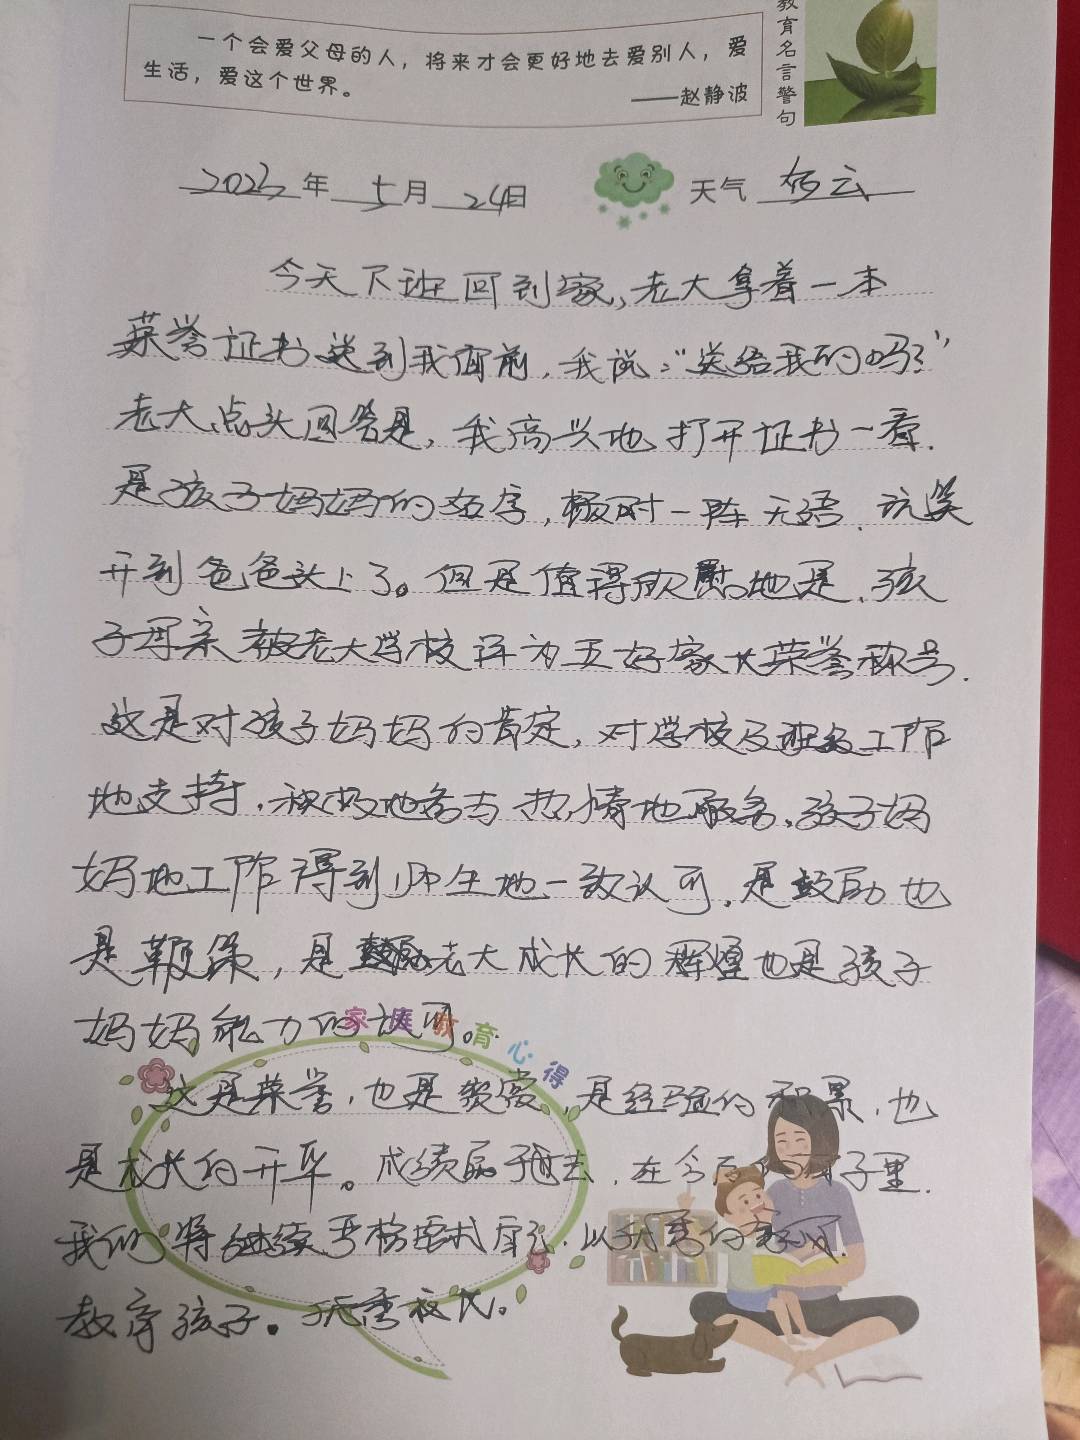 一个会爱父母的人，将来才会更好地去爱别人，爱
生活，爱这个世界。
——赵静波
教育名言警句
2023年 5月 24日 天气 多云
今天下班回到家，老大拿着一本
荣誉证书送到我面前，我说："送给我的吗？"
老大点头回答是，我高兴地打开证书一看，
是孩子妈妈的名字，顿时一阵无语，玩笑
开到爸爸头上了。但是值得欣慰地是，孩
子母亲被老大学校评为五好家长荣誉称号，
这是对孩子妈妈的肯定，对学校及班级工作
地支持，积极地参与热情地服务，孩子妈
妈地工作得到师生地一致认可，是鼓励也
是鞭策，是老大成长的辉煌也是孩子
妈妈能力的认可。
家庭教育心得
这是荣誉，也是赞赏，是经验的积累，也
是成长的开华。成绩属于过去，在今后的日子里，
我们将继续严格要求自己，以优秀的
教育孩子。优秀家长。